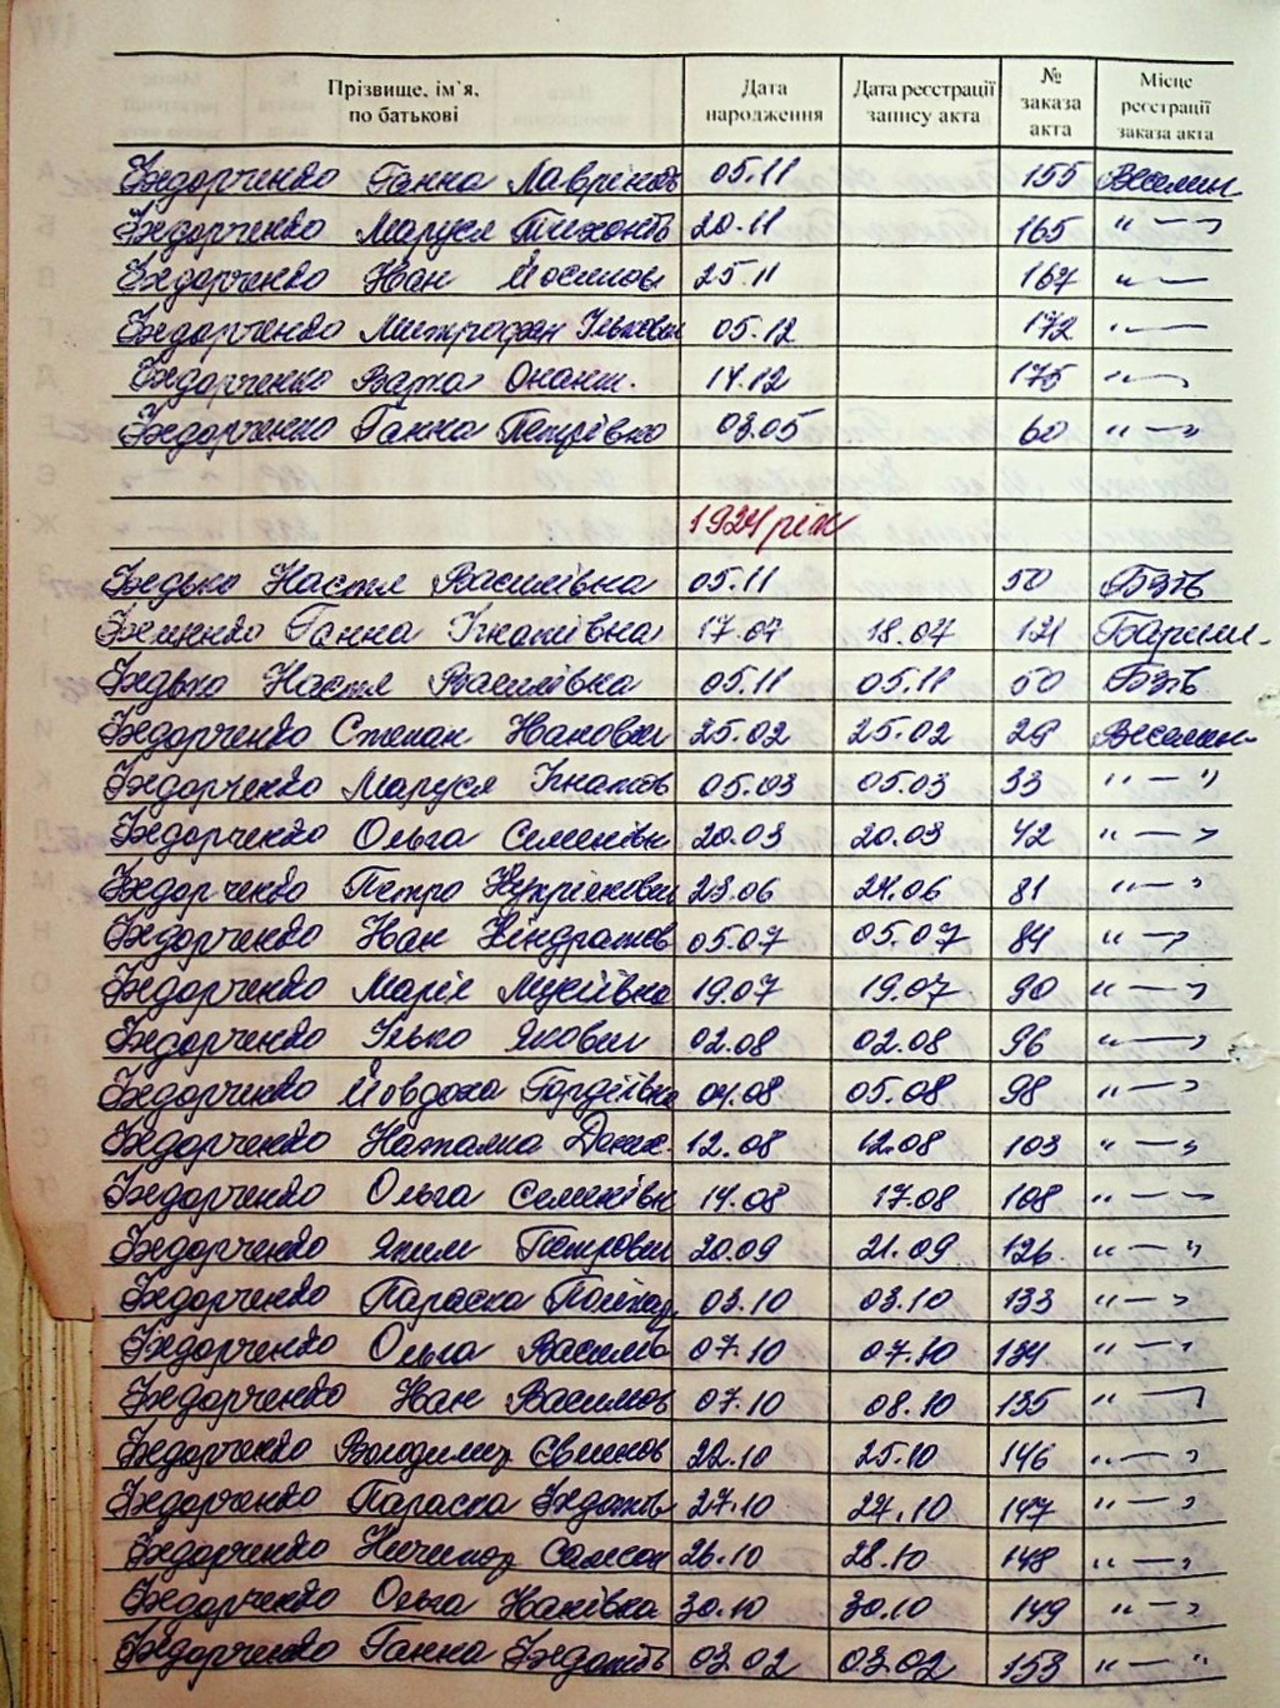 Прізвище, ім`я, по батькові Дата народження Дата реєстрації запису акта № заказа акта Місце реєстрації заказа акта
Федорченко Ганна Лаврінів 05.11 155 Веселин-
Федорченко Маруся Тихонів 20.11 165 " — "
Федорченко Іван Йосипов 25.11 167 " — "
Федорченко Митрофан Ількович 05.12 172 " — "
Федорченко Варка Онанш. 14.12 175 " — "
Федорченко Ганна Петрівна 03.05 60 " — "
1924 рік
Федько Настя Василівна 05.11 50 Бзів
Фещенко Ганна Ігнатівна 17.07 18.07 121 Бариш-
Федько Настя Василівна 05.11 05.11 50 Бзів
Федорченко Степан Іванович 25.02 25.02 29 Веселин-
Федорченко Маруся Ігнатів 05.03 05.03 33 " — "
Федорченко Ольга Семенівн 20.03 20.03 42 " — "
Федорченко Петро Купріянович 23.06 24.06 81 " — "
Федорченко Іван Кіндратов 05.07 05.07 84 " — "
Федорченко Марія Мусіївна 19.07 19.07 90 " — "
Федорченко Ілько Якович 02.08 02.08 96 " — "
Федорченко Йовдоха Гордіївна 04.08 05.08 98 " — "
Федорченко Наталка Денис. 12.08 12.08 103 " — "
Федорченко Ольга Семенівн 14.08 17.08 108 " — "
Федорченко Яким Петрович 20.09 21.09 126 " — "
Федорченко Параска 03.10 03.10 133 " — "
Федорченко Ольга Василів 07.10 07.10 134 " — "
Федорченко Іван Васильов 07.10 08.10 135 " — "
Федорченко Володимир 22.10 25.10 146 " — "
Федорченко Параска Федотів 27.10 27.10 147 " — "
Федорченко Ничипор Самсон 26.10 28.10 148 " — "
Федорченко Ольга Іванівна 30.10 30.10 149 " — "
Федорченко Ганна Федотів 03.02 03.02 153 " — "